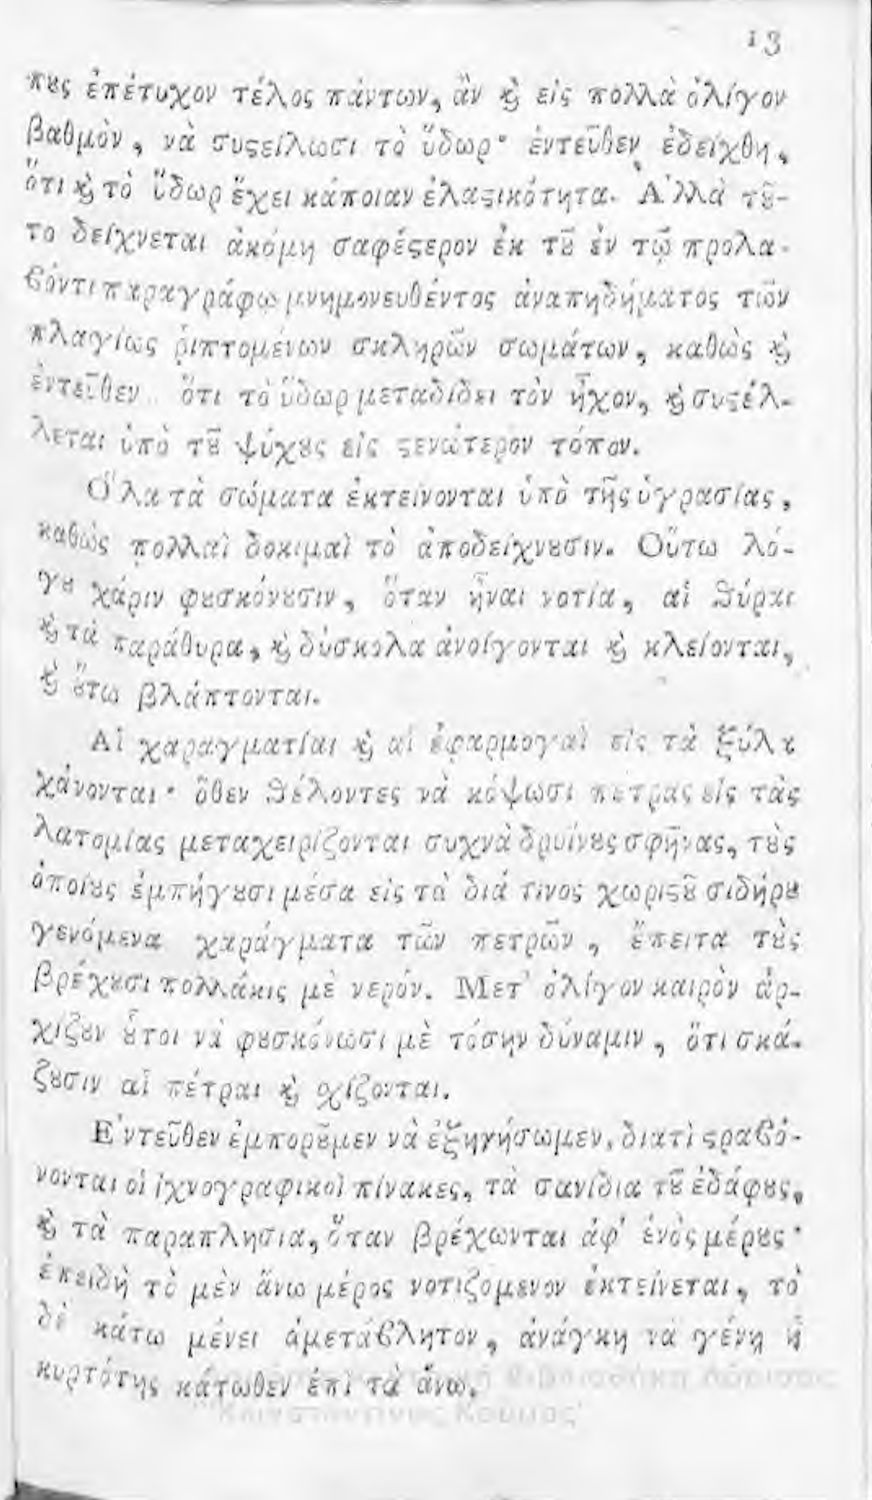 13
πȣς ἐπέτυχον τέλος πάντων, ἂν ϗ̀ εἰς πολλὰ ὀλίγον
βαθμὸν, νὰ συϛείλωσι τὸ ὕδωρ· ἐντεῦθεν ἐδείχθη,
ὅτι ϗ̀ τὸ ὕδωρ ἔχει κάποιαν ἐλαϛικότητα. Α᾿λλὰ τȣ͂-
το δείχνεται ἀκόμη σαφέϛερον ἐκ τȣ͂ ἐν τῷ προλα-
ϐόντι παραγράφῳ μνημονευθέντος ἀναπηδήματος τῶν
πλαγίως ῥιπτομένων σκληρῶν σωμάτων, καθὼς ϗ̀
ἐντεῦθεν ὅτι τὸ ὕδωρ μεταδίδει τὸν ἦχον, ϗ̀ συϛέλ-
λεται ὑπὸ τȣ͂ ψύχȣς εἰς ϛενώτερον τόπον.
Ο῞λα τὰ σώματα ἐκτείνονται ὑπὸ τῆς ὑγρασίας,
καθὼς πολλαὶ δοκιμαὶ τὸ ἀποδείχνȣσιν. Οὕτω λό-
γȣ χάριν φȣσκόνȣσιν, ὅταν ἦναι νοτία, αἱ ϑύραι
ϗ̀ τὰ παράθυρα, ϗ̀ δύσκολα ἀνοίγονται ϗ̀ κλείονται,
ϗ̀ ȣ̔́τω βλάπτονται.
Αἱ χαραγματίαι ϗ̀ αἱ ἐφαρμογαὶ εἰς τὰ ξύλα
χάνονται· ὅθεν ϑέλοντες νὰ κόψωσι πέτρας εἰς τὰς
λατομίας μεταχειρίζονται συχνὰ δρυίνȣς σφῆνας, τȣ̀ς
ὁποίȣς ἐμπήγȣσι μέσα εἰς τὰ διά τινος χωριϛȣ͂ σιδήρȣ
γενόμενα χαράγματα τῶν πετρῶν, ἔπειτα τȣ̀ς
βρέχȣσι πολλάκις μὲ νερόν. Μετ᾿ ὀλίγον καιρὸν ἀρ-
χίζȣν ȣ̔͂τοι νὰ φȣσκόνωσι μὲ τόσην δύναμιν, ὅτι σκά-
ζȣσιν αἱ πέτραι ϗ̀ σχίζονται.
Ε᾿ντεῦθεν ἐμπορȣ͂μεν νὰ ἐξηγήσωμεν, διατὶ ϛραϐό-
νονται οἱ ἰχνογραφικοὶ πίνακες, τὰ σανίδια τȣ͂ ἐδάφȣς,
ϗ̀ τὰ παραπλησια, ὅταν βρέχωνται ἀφ᾿ ἑνὸς μέρȣς·
ἐπειδὴ τὸ μὲν ἄνω μέρος νοτιζομενον ἐκτείνεται, τὸ
δὲ κάτω μένει ἀμετάϐλητον, ἀνάγκη νὰ γένῃ ἡ
κυρτότης κάτωθεν ἐπὶ τὰ ἄνω.
Βιβλιοθήκη Λάρισας
"Κωνσταντίνος Κούμας"